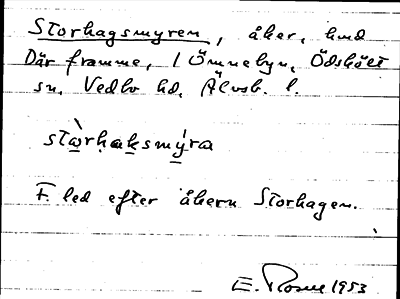 Storhagsmyren, åker, hmd
Där framme, 1 Ömnebyn, Ödskölt
sn, Vedbo hd, Älvsb. l.
stàrhaksmýra
F. led efter åkern Storhagen.
E. Rosell 1953